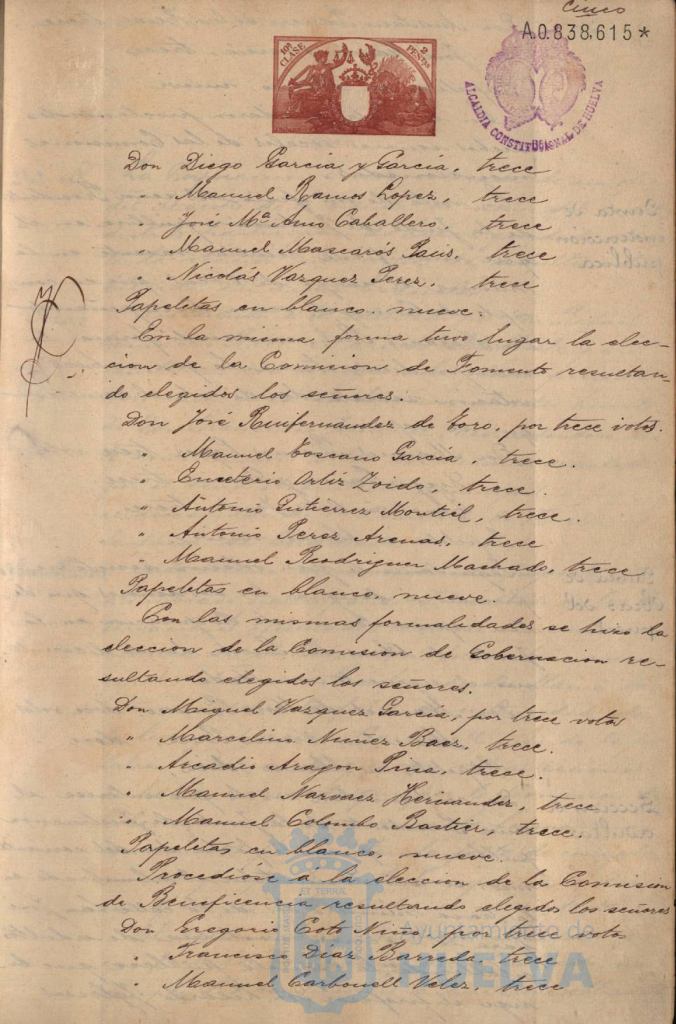 cinco
A.0.838,615*
10ª CLASE
2 PESETAS
ALCALDIA CONSTITUCIONAL DE HUELVA
Don Diego Garcia y Garcia, trece
" Manuel Ramos Lopez, trece
" José Mª Amo Caballero, trece
" Manuel Mascarós Paús, trece
" Nicolás Vazquez Perez, trece
Papeletas en blanco, nueve.
En la misma forma tuvo lugar la elec-
cion de la Comision de Fomento resultan-
do elegidos los señores.
Don José Ruifernandez de Toro, por trece votos.
" Manuel Toscano Garcia, trece.
" Emeterio Ortiz Zoido, trece.
" Antonio Gutierrez Montiel, trece.
" Antonio Perez Arenas, trece
" Manuel Rodriguez Machado, trece
Papeletas en blanco, nueve.
Con las mismas formalidades se hizo la
eleccion de la Comision de Gobernacion re-
sultando elegidos los señores.
Don Miguel Vazquez Garcia, por trece votos
" Marcelino Nuñez Baez, trece.
" Arcadio Aragon Pina, trece.
" Manuel Narvaez Hernandez, trece
" Manuel Colombo Bastier, trece
Papeletas en blanco, nueve.
Procedióse á la eleccion de la Comision
de Beneficencia resultando elegidos los señores
Don Gregorio Coto Nuño, por trece votos
" Francisco Diaz Barreda, trece
" Manuel Carbonell Velez, trece
Ayuntamiento de
HUELVA